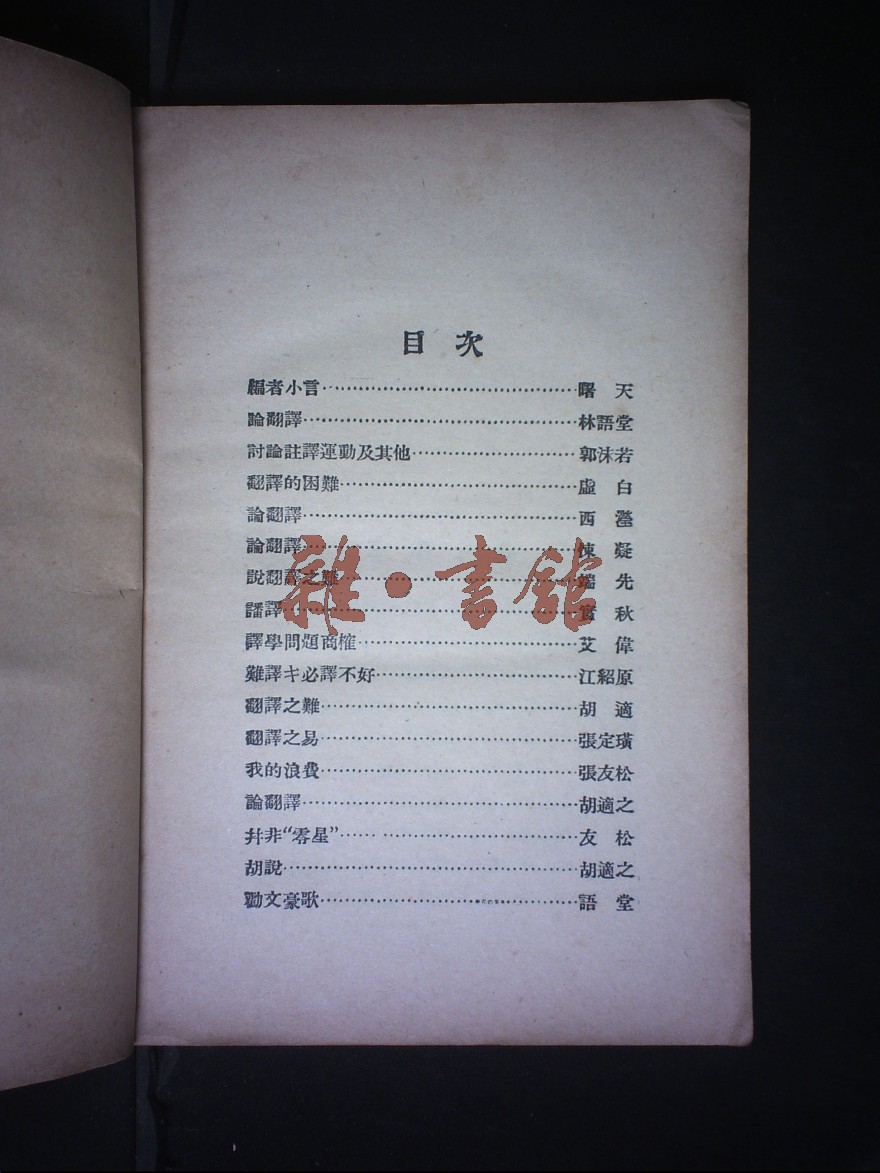 目次
編者小言……曙天
論翻譯……林語堂
討論註譯運動及其他……郭沫若
翻譯的困難……虛白
論翻譯……西瀅
論翻譯……陳凝
說翻譯之難……端先
譒譯……實秋
譯學問題商榷……艾偉
難譯キ必譯不好……江紹原
翻譯之難……胡適
翻譯之易……張定璜
我的浪費……張友松
論翻譯……胡適之
幷非“零星”……友松
胡說……胡適之
勸文豪歌……語堂
雜·書館